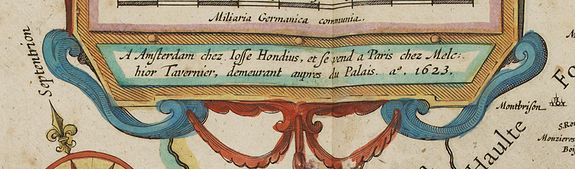 Miliaria Germanica communia.
A Amsterdam chez Iosse Hondius, et se vend a Paris chez Melc:
hior Tavernier, demeurant aupres du Palais. aº. 1623.
Septentrion
Montbrison
Haulte
Fo
S.Ro
Mouzieres
Boi